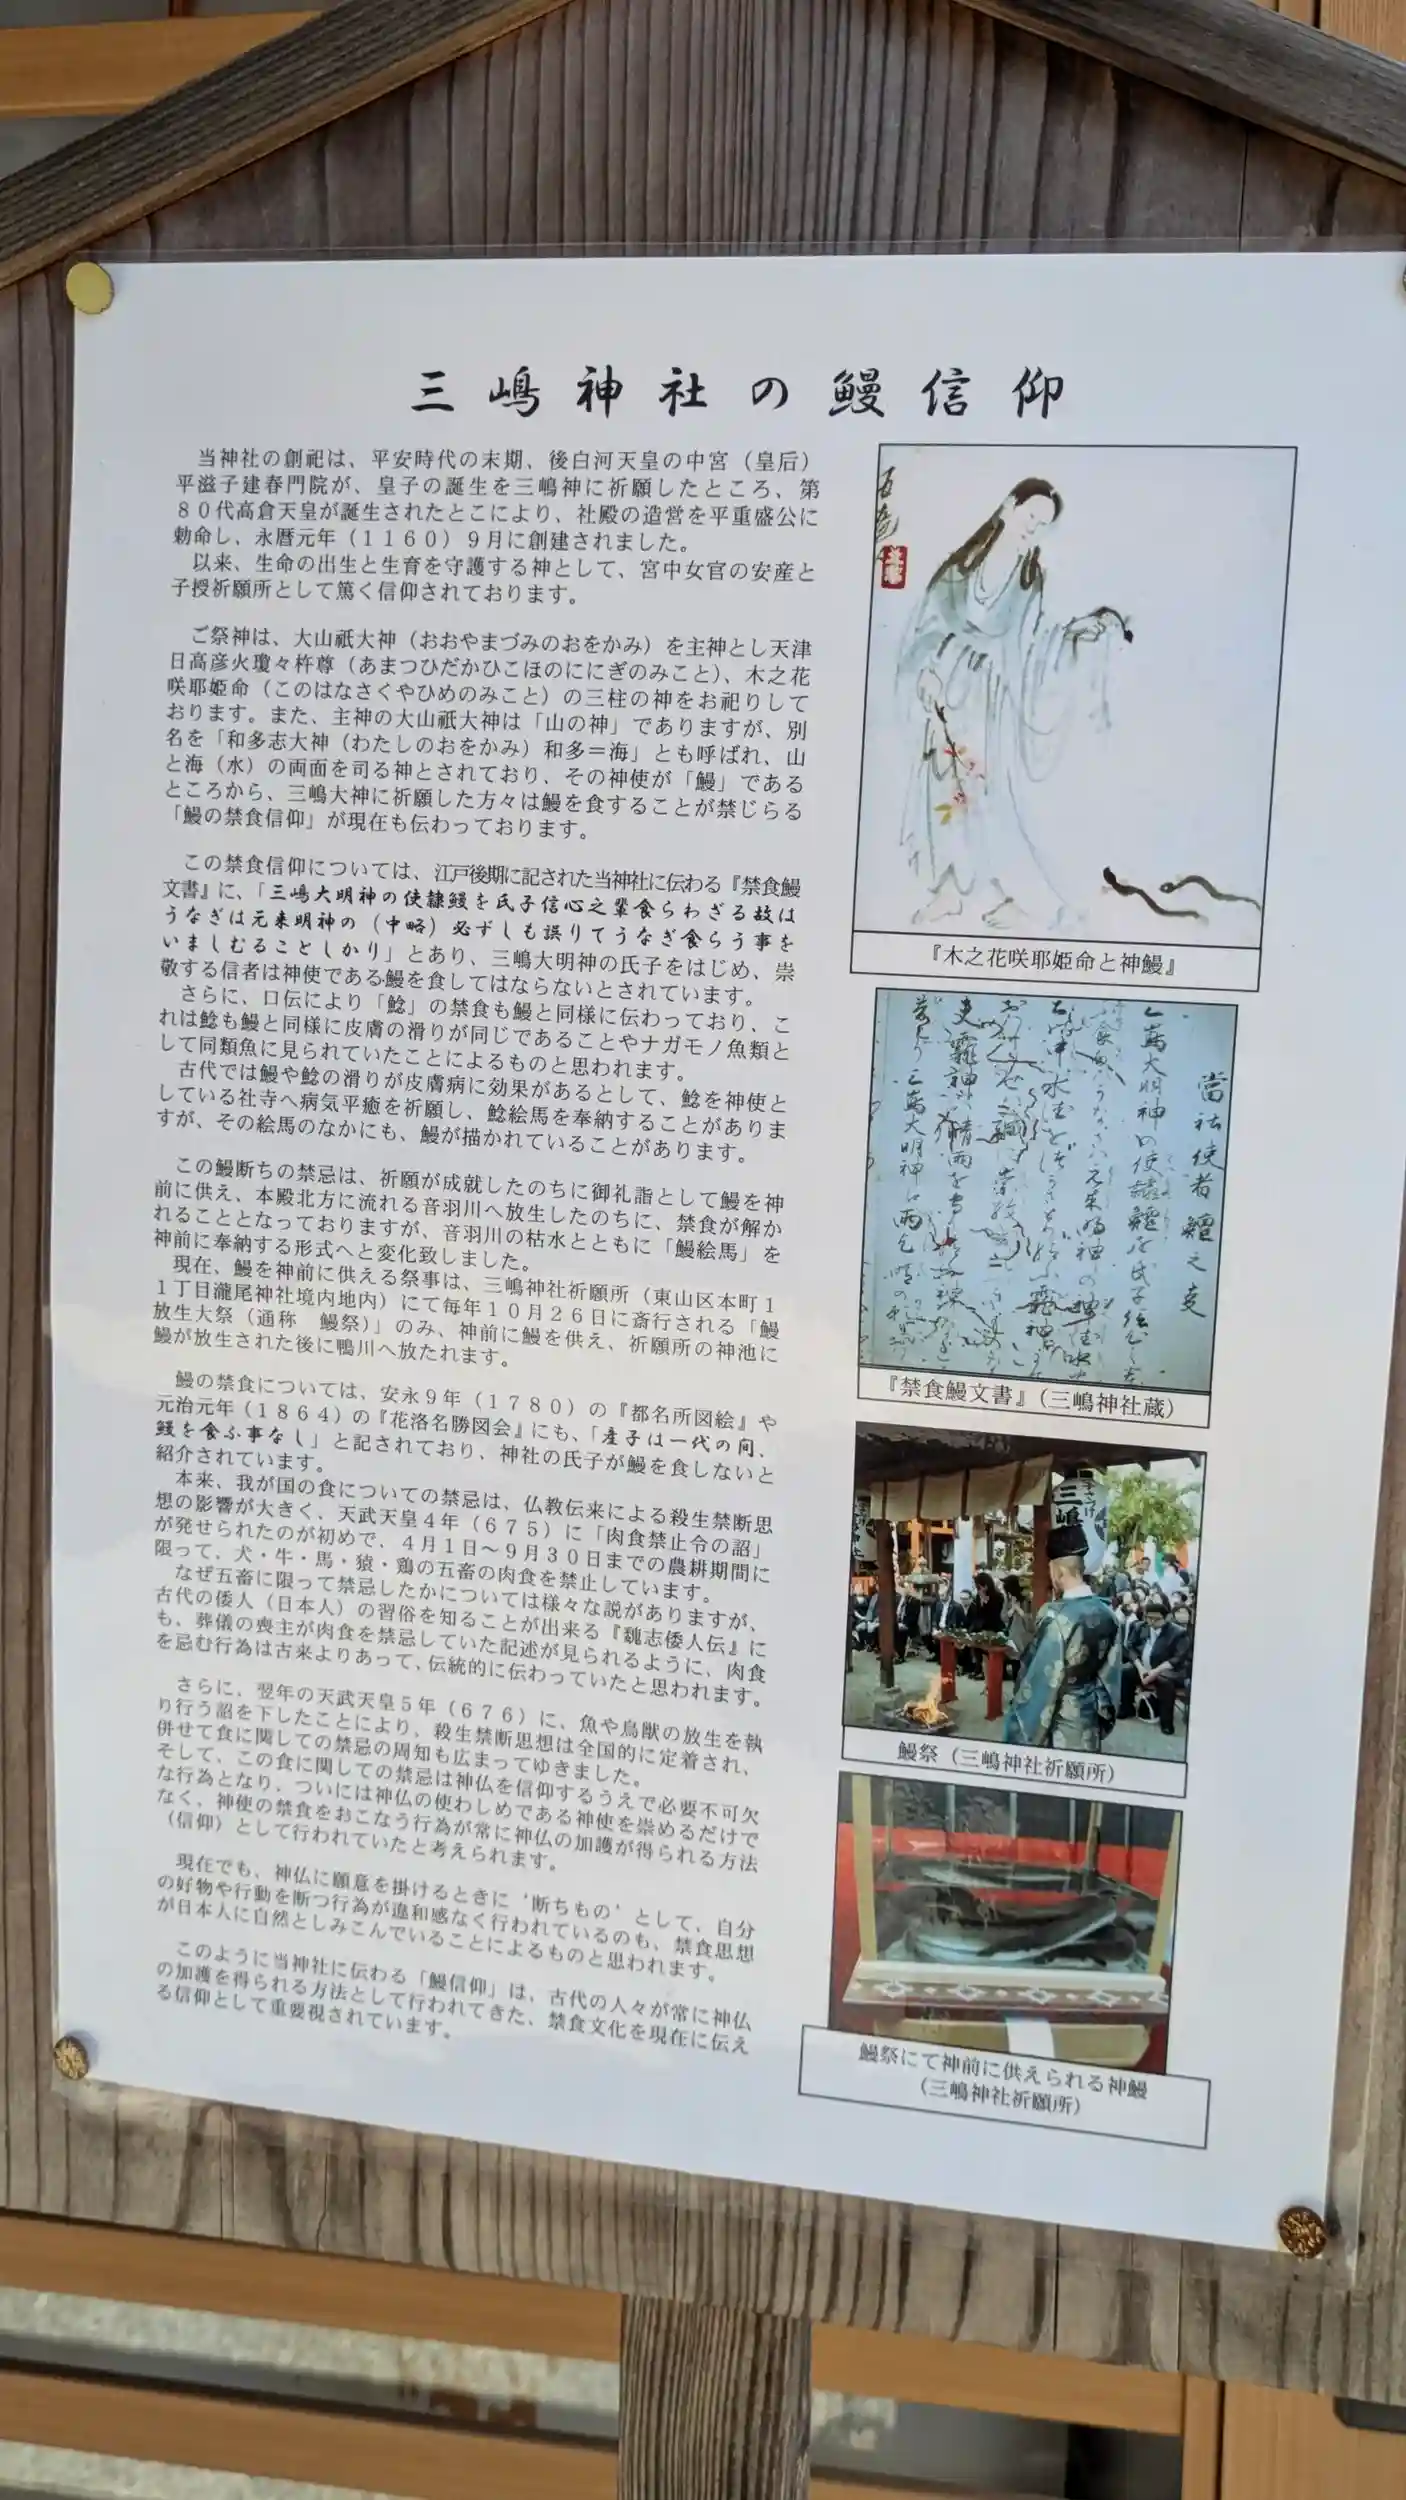 三嶋神社の鰻信仰
当神社の創祀は、平安時代の末期、後白河天皇の中宮（皇后）
平滋子建春門院が、皇子の誕生を三嶋神に祈願したところ、第
８０代高倉天皇が誕生されたとこにより、社殿の造営を平重盛公に
勅命し、永暦元年（１１６０）９月に創建されました。
以来、生命の出生と生育を守護する神として、宮中女官の安産と
子授祈願所として篤く信仰されております。
ご祭神は、大山祇大神（おおやまづみのおをかみ）を主神とし天津
日高彦火瓊々杵尊（あまつひだかひこほのににぎのみこと）、木之花
咲耶姫命（このはなさくやひめのみこと）の三柱の神をお祀りして
おります。また、主神の大山祇大神は「山の神」でありますが、別
名を「和多志大神（わたしのおをかみ）和多＝海」とも呼ばれ、山
と海（水）の両面を司る神とされており、その神使が「鰻」である
ところから、三嶋大神に祈願した方々は鰻を食することが禁じらる
「鰻の禁食信仰」が現在も伝わっております。
この禁食信仰については、江戸後期に記された当神社に伝わる『禁食鰻
文書』に、「三嶋大明神の使隷鰻を氏子信心之輩食らわざる故は
うなぎは元来明神の（中略）必ずしも誤りてうなぎ食らう事を
いましむることしかり」とあり、三嶋大明神の氏子をはじめ、崇
敬する信者は神使である鰻を食してはならないとされています。
さらに、口伝により「鯰」の禁食も鰻と同様に伝わっており、こ
れは鯰も鰻と同様に皮膚の滑りが同じであることやナガモノ魚類と
して同類魚に見られていたことによるものと思われます。
古代では鰻や鯰の滑りが皮膚病に効果があるとして、鯰を神使と
している社寺へ病気平癒を祈願し、鯰絵馬を奉納することがありま
すが、その絵馬のなかにも、鰻が描かれていることがあります。
この鰻断ちの禁忌は、祈願が成就したのちに御礼詣として鰻を神
前に供え、本殿北方に流れる音羽川へ放生したのちに、禁食が解か
れることとなっておりますが、音羽川の枯水とともに「鰻絵馬」を
神前に奉納する形式へと変化致しました。
現在、鰻を神前に供える祭事は、三嶋神社祈願所（東山区本町１
１丁目瀧尾神社境内地内）にて毎年１０月２６日に斎行される「鰻
放生大祭（通称　鰻祭）」のみ、神前に鰻を供え、祈願所の神池に
鰻が放生された後に鴨川へ放たれます。
鰻の禁食については、安永９年（１７８０）の『都名所図絵』や
元治元年（１８６４）の『花洛名勝図会』にも、「産子は一代の間、
鰻を食ふ事なし」と記されており、神社の氏子が鰻を食しないと
紹介されています。
本来、我が国の食についての禁忌は、仏教伝来による殺生禁断思
想の影響が大きく、天武天皇４年（６７５）に「肉食禁止令の詔」
が発せられたのが初めで、４月１日～９月３０日までの農耕期間に
限って、犬・牛・馬・猿・鶏の五畜の肉食を禁止しています。
なぜ五畜に限って禁忌したかについては様々な説がありますが、
古代の倭人（日本人）の習俗を知ることが出来る『魏志倭人伝』に
も、葬儀の喪主が肉食を禁忌していた記述が見られるように、肉食
を忌む行為は古来よりあって、伝統的に伝わっていたと思われます。
さらに、翌年の天武天皇５年（６７６）に、魚や鳥獣の放生を執
り行う詔を下したことにより、殺生禁断思想は全国的に定着され、
併せて食に関しての禁忌の周知も広まってゆきました。
そして、この食に関しての禁忌は神仏を信仰するうえで必要不可欠
な行為となり、ついには神仏の使わしめである神使を崇めるだけで
なく、神使の禁食をおこなう行為が常に神仏の加護が得られる方法
（信仰）として行われていたと考えられます。
現在でも、神仏に願意を掛けるときに‘断ちもの’として、自分
の好物や行動を断つ行為が違和感なく行われているのも、禁食思想
が日本人に自然としみこんでいることによるものと思われます。
このように当神社に伝わる「鰻信仰」は、古代の人々が常に神仏
の加護を得られる方法として行われてきた、禁食文化を現在に伝え
る信仰として重要視されています。
『木之花咲耶姫命と神鰻』
當社使者鰻之支
『禁食鰻文書』（三嶋神社蔵）
三嶋
鰻祭（三嶋神社祈願所）
鰻祭にて神前に供えられる神鰻
（三嶋神社祈願所）